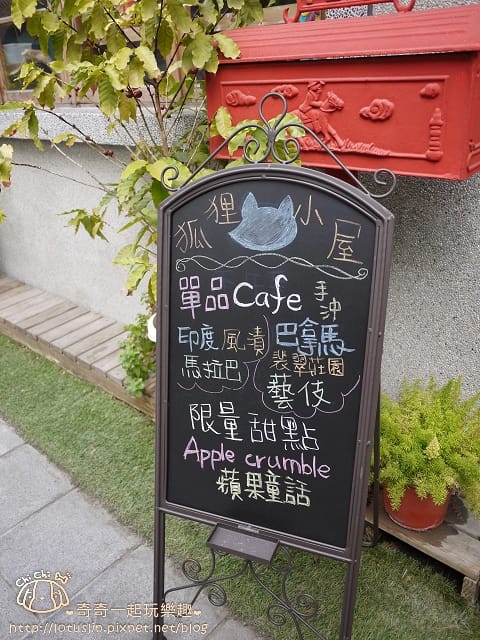 狐狸小屋
單品Cafe 手沖
印度風漬
馬拉巴
巴拿馬
翡翠莊園
藝伎
限量甜點
Apple crumble
蘋果童話
Chi Chi
奇奇一起玩樂趣
http://lotuslin.pixnet.net/blog